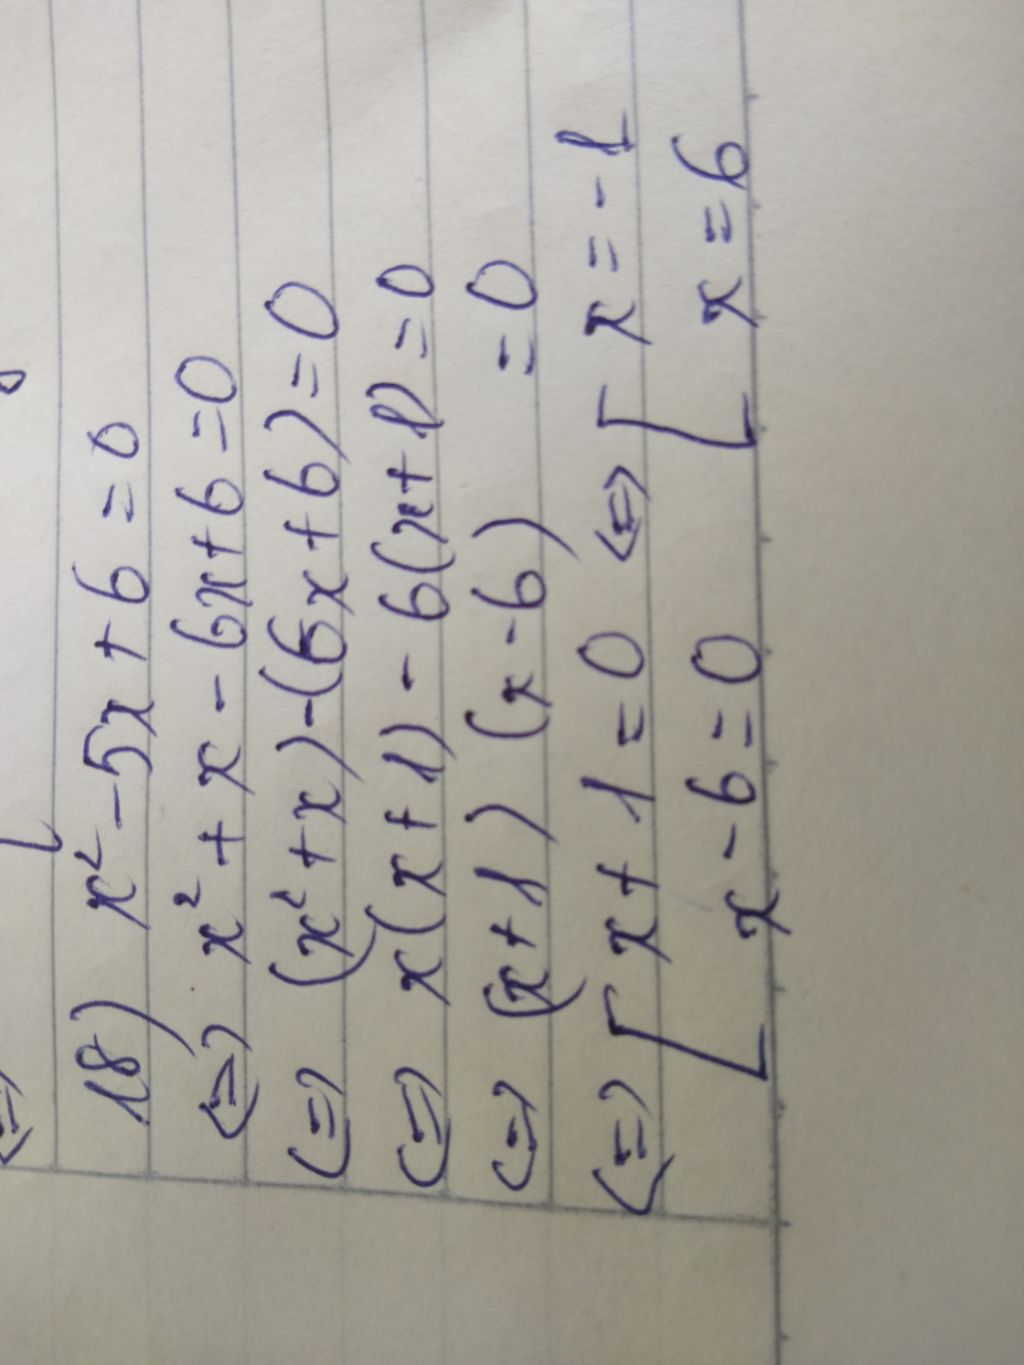 18) x² - 5x + 6 = 0
(=) x² + x - 6x + 6 = 0
(=) (x² + x) - (6x + 6) = 0
(=) x(x + 1) - 6(x + 1) = 0
(=) (x + 1) (x - 6) = 0
(=) [ x + 1 = 0 (=) [ x = - 1
x - 6 = 0 x = 6